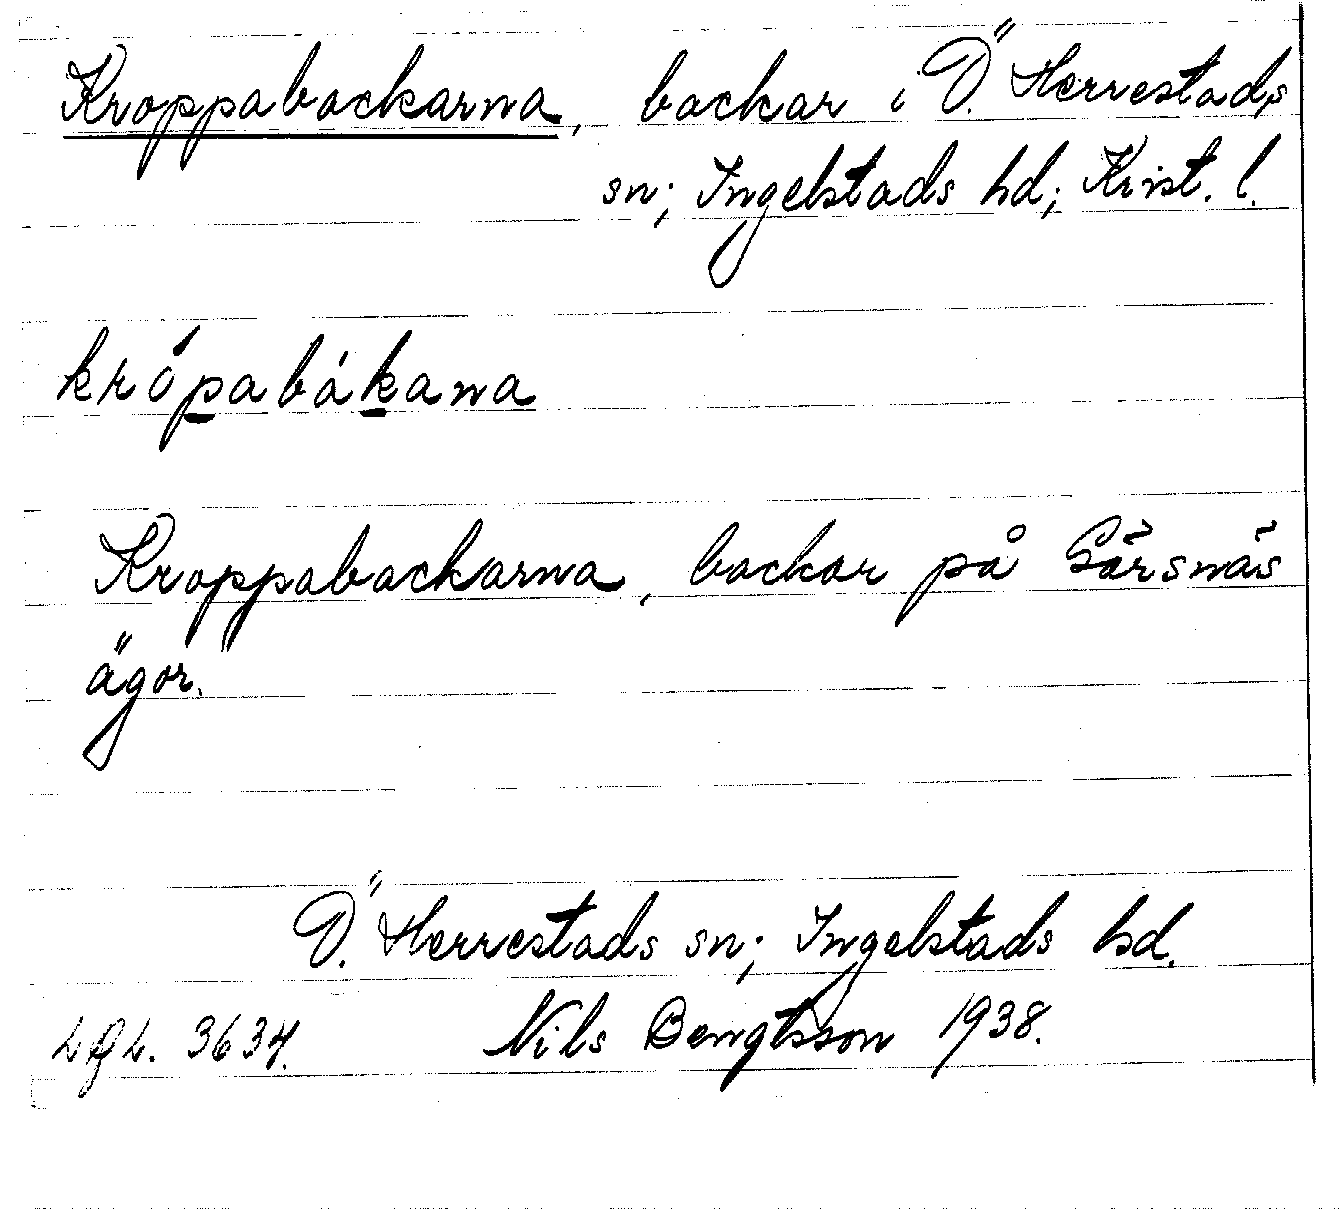 Kroppabackarna, backar i Ö. Herrestads
sn; Ingelstads hd; Krist. l.
krópabákana
Kroppabackarna, backar på Gärsnäs
ägor.
Ö. Herrestads sn; Ingelstads hd.
3634. Nils Bengtsson 1938.